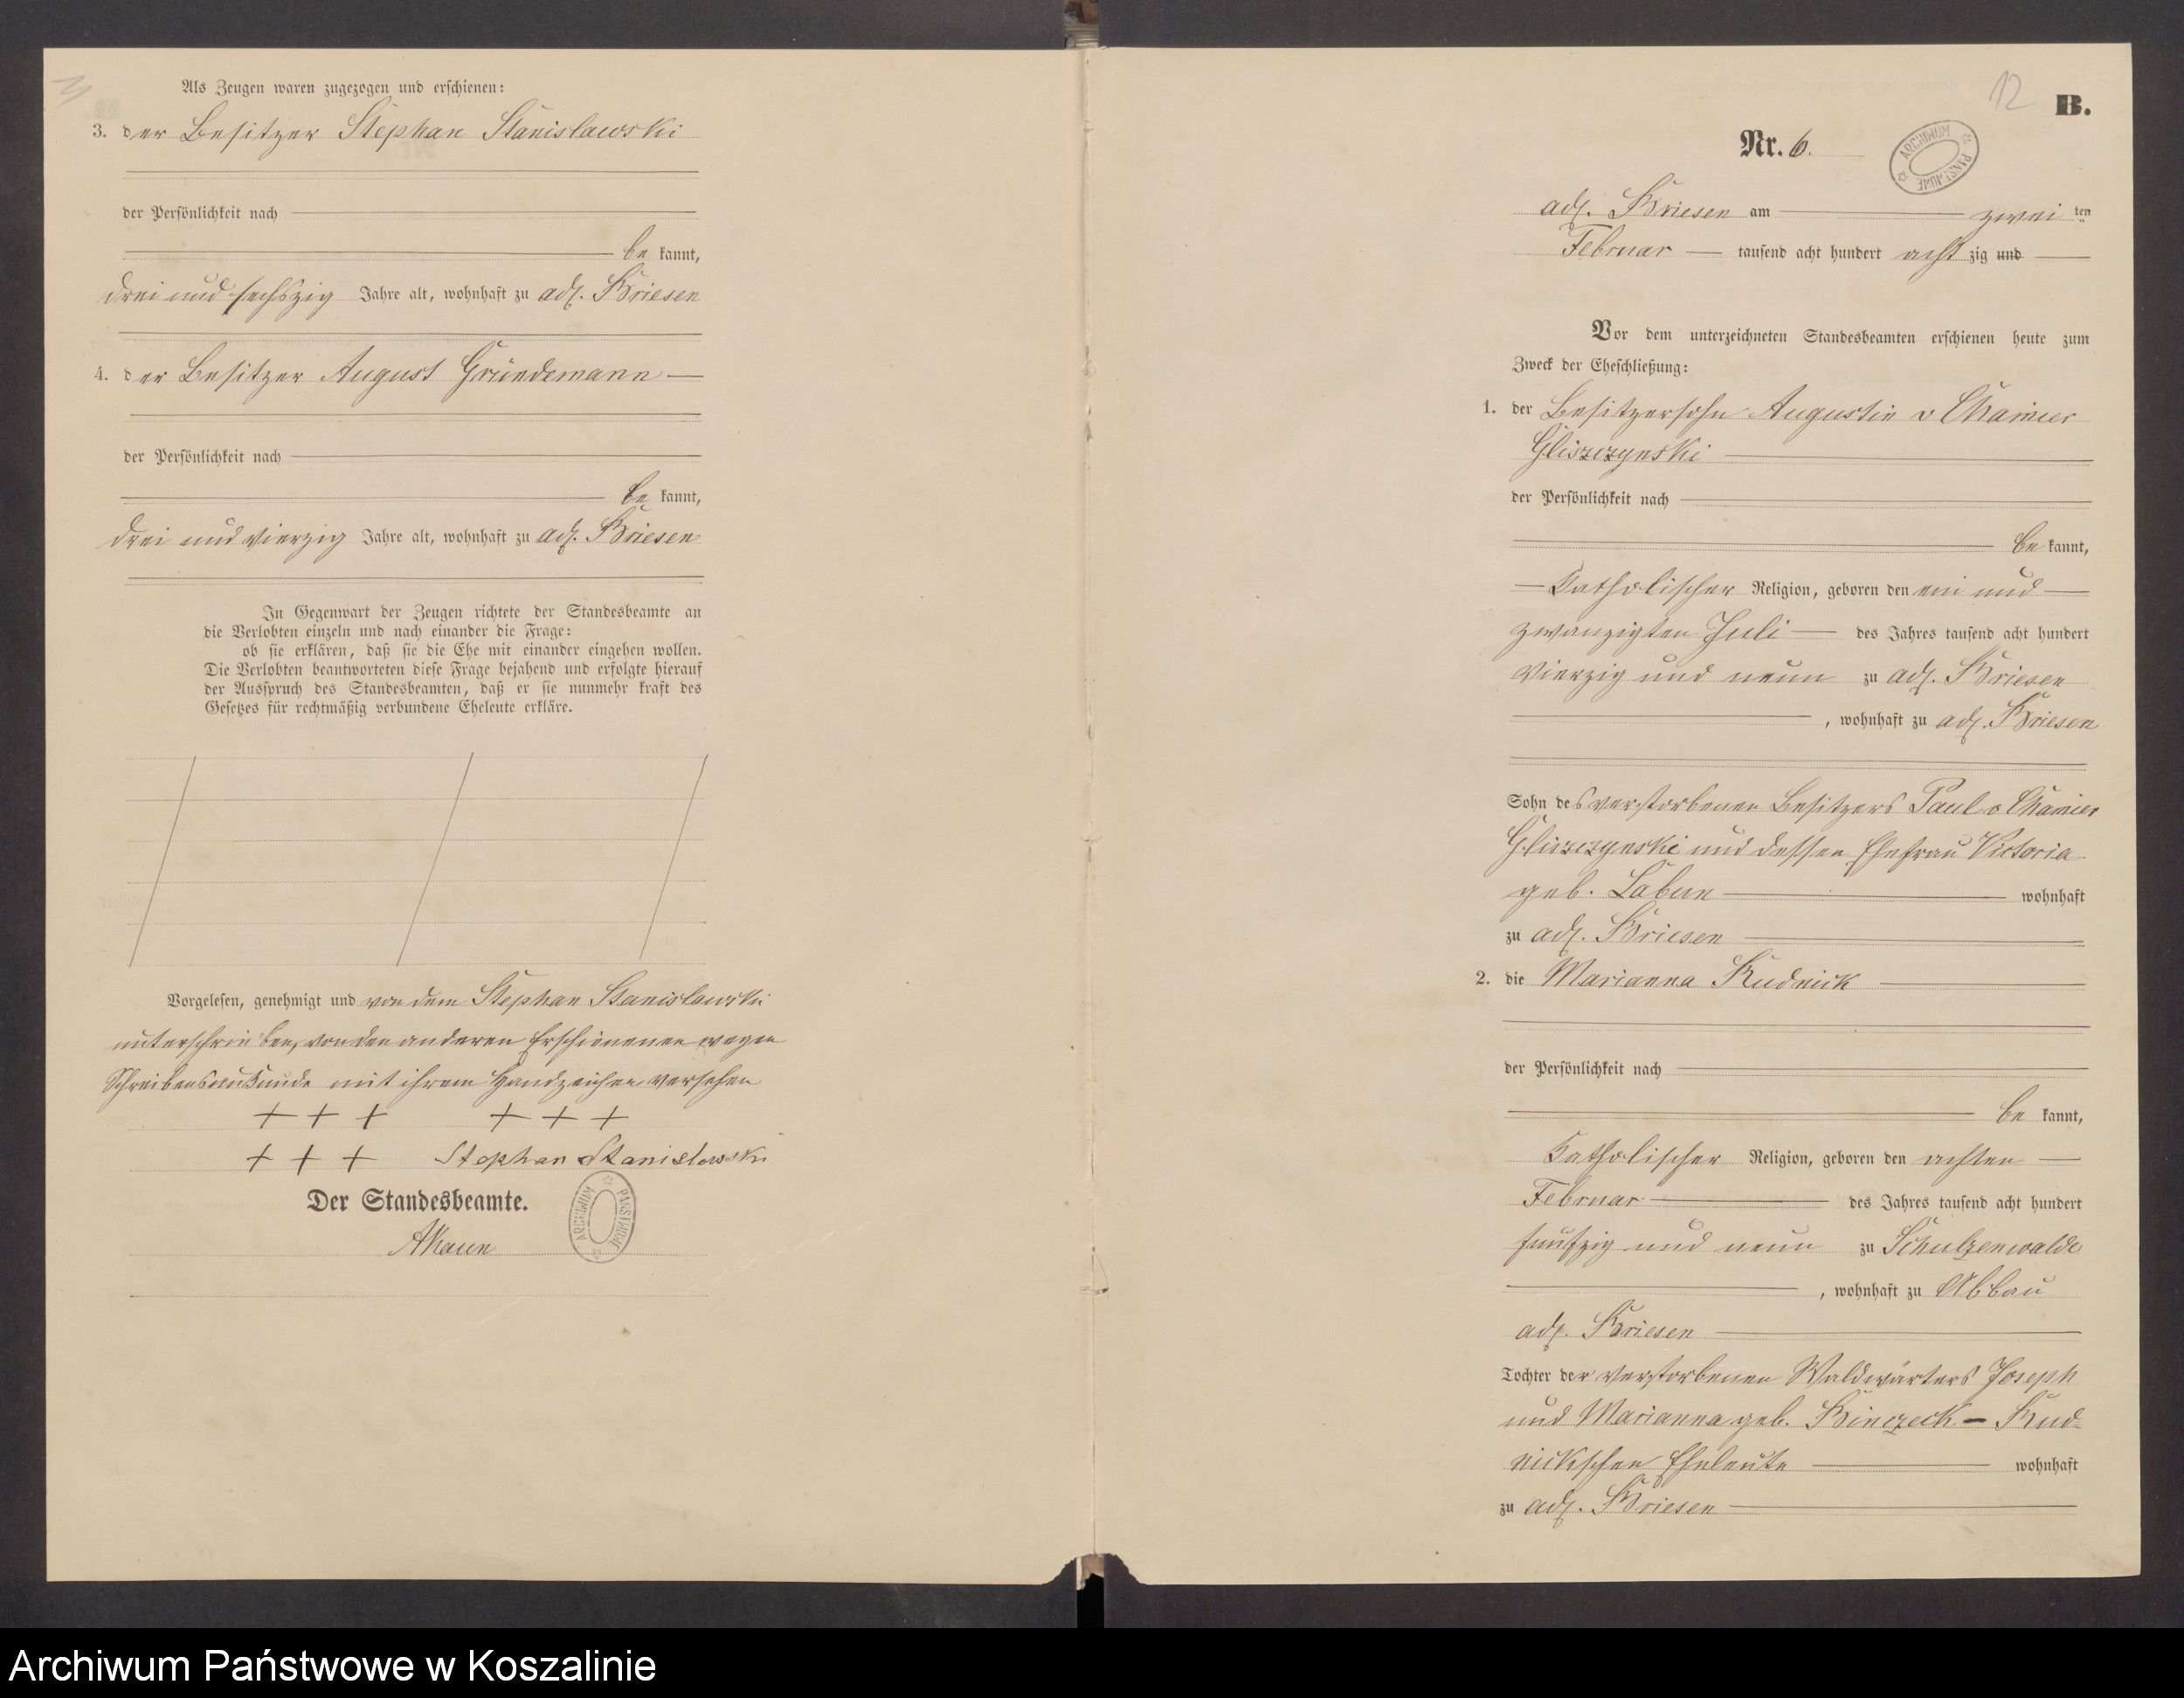 Als Zeugen waren zugezogen und erschienen:
3. der Besitzer Stephan Stanislawski
der Persönlichkeit nach
be kannt,
drei und sechszig Jahre alt, wohnhaft zu adl. Briesen
4. der Besitzer August Gründemann
der Persönlichkeit nach
be kannt,
drei und vierzig Jahre alt, wohnhaft zu adl. Briesen
In Gegenwart der Zeugen richtete der Standesbeamte an
die Verlobten einzeln und nach einander die Frage:
ob sie erklären, daß sie die Ehe mit einander eingehen wollen.
Die Verlobten beantworteten diese Frage bejahend und erfolgte hierauf
der Ausspruch des Standesbeamten, daß er sie nunmehr kraft des
Gesetzes für rechtmäßig verbundene Eheleute erkläre.
Vorgelesen, genehmigt und von dem Stephan Stanislawski
unterschrieben, von den anderen Erschienenen wegen
Schreibensunkunde mit ihrem Handzeichen versehen
+ + + + + +
+ + + Stephan Stanislowski
Der Standesbeamte.
ARCHIWUM PAŃSTWOWE
12
B.
Nr. 6.
ARCHIWUM PAŃSTWOWE
adl. Briesen am zwei ten
Februar tausend acht hundert acht zig und
Vor dem unterzeichneten Standesbeamten erschienen heute zum
Zweck der Eheschließung:
1. der Besitzersohn Augustin v Chamier
Gliszczynski
der Persönlichkeit nach
be kannt,
Katholischer Religion, geboren den ein und
zwanzigten Juli des Jahres tausend acht hundert
vierzig und neun zu adl. Briesen
, wohnhaft zu adl. Briesen
Sohn des verstorbenen Besitzers Paul v Chamier
Gliszczynski und dessen Ehefrau Victoria
geb. Labun wohnhaft
zu adl. Briesen
2. die Marianna Rudnick
der Persönlichkeit nach
be kannt,
Katholischer Religion, geboren den achten
Februar des Jahres tausend acht hundert
funfzig und neun zu Schulzenwalde
, wohnhaft zu Abbau
adl. Briesen
Tochter der verstorbenen Waldwärters Joseph
und Marianna geb. Binczeck - Rud-
nickschen Eheleute wohnhaft
zu adl. Briesen
Archiwum Państwowe w Koszalinie